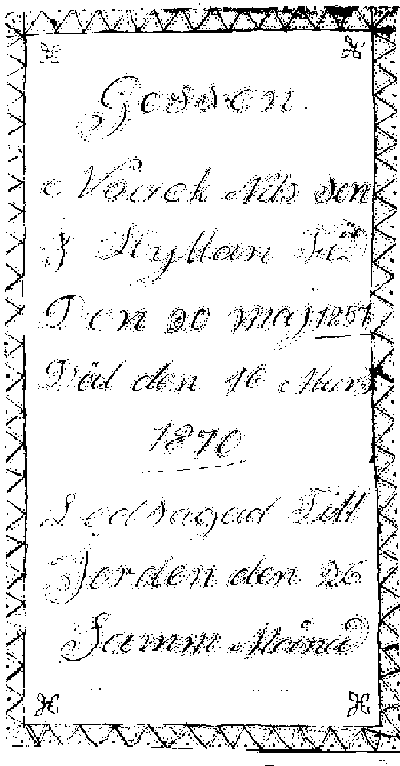 Gossen.
Noack Nils son
I Hyllan Föd
Den 20 Maj 1857
Död den 16 Mars
1870
Ledsagad Till
Jorden den 26
Samm Månad